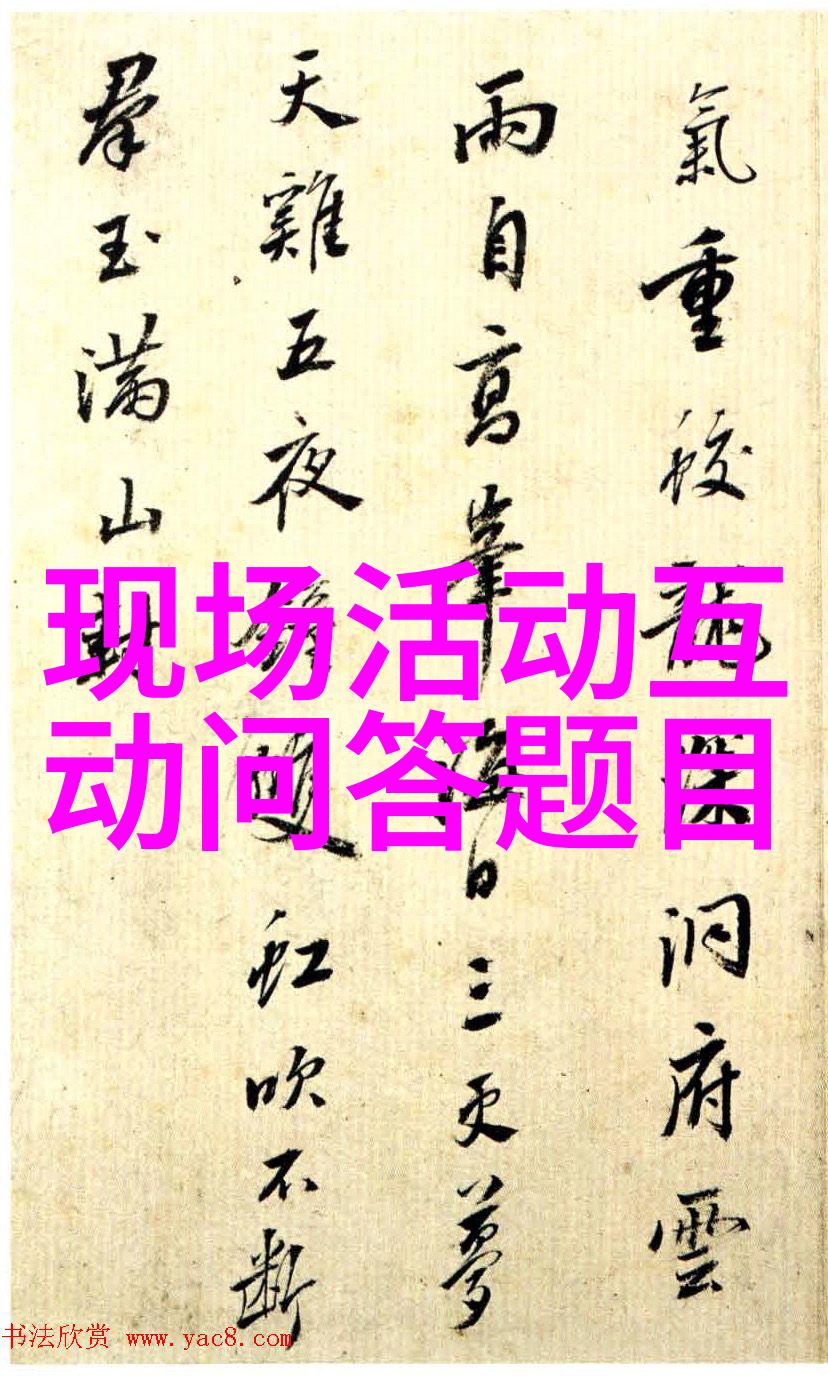 氣重蛟龍深洞府雲
雨自高峯海日三更夢
天雞五夜雙虹吹不斷
羣玉滿山
现场活动互
动问答题目
书法欣赏 www.yac8.com